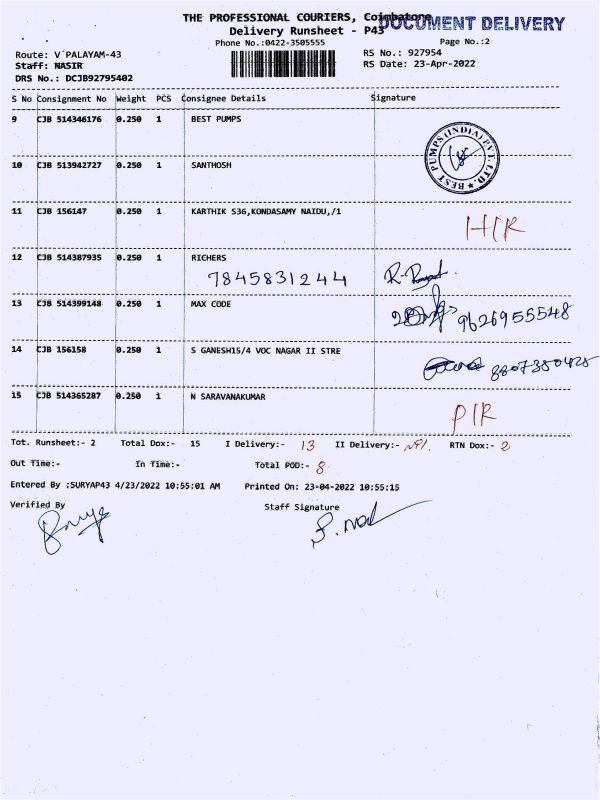 THE PROFESSIONAL COURIERS, Coimbatore
DOCUMENT DELIVERY
Delivery Runsheet - P43
Phone No.:0422-3505555
Page No.:2
Route: V PALAYAM-43
RS No.: 927954
Staff: NASIR
RS Date: 23-Apr-2022
DRS No.: DCJB92795402
S No Consignment No Weight PCS Consignee Details Signature
9 CJB 514346176 0.250 1 BEST PUMPS
BEST PUMPS (INDIA) PVT. LTD.
10 CJB 513942727 0.250 1 SANTHOSH
11 CJB 156147 0.250 1 KARTHIK S36,KONDASAMY NAIDU,/1
12 CJB 514387935 0.250 1 RICHERS
7845831244
13 CJB 514399148 0.250 1 MAX CODE
9626955548
14 CJB 156158 0.250 1 S GANESH15/4 VOC NAGAR II STRE
15 CJB 514365287 0.250 1 N SARAVANAKUMAR
Tot. Runsheet:- 2 Total Dox:- 15 I Delivery:- 13 II Delivery:- RTN Dox:- 2
Out Time:- In Time:- Total POD:- 8
Entered By :SURYAP43 4/23/2022 10:55:01 AM Printed On: 23-04-2022 10:55:15
Verified By Staff Signature